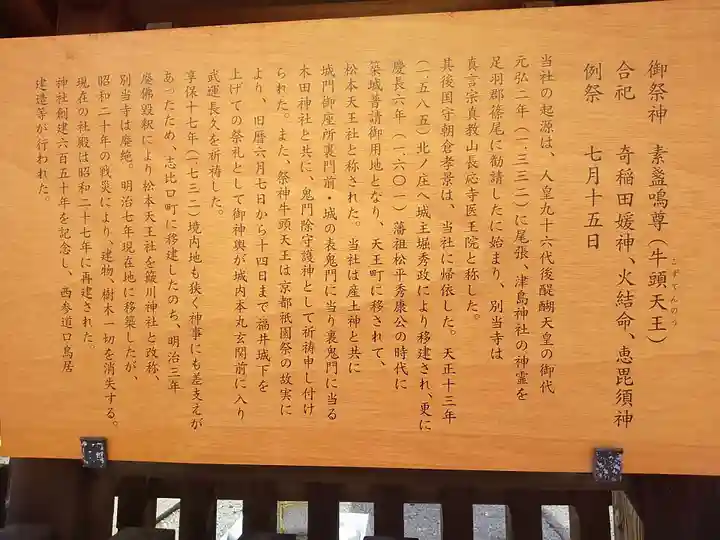 御祭神　素盞嗚尊（牛頭天王）
ごずてんのう
合祀　奇稲田媛神、火結命、恵毘須神
例祭　七月十五日
当社の起源は、人皇九十六代後醍醐天皇の御代
元弘二年（一三三二）に尾張、津島神社の神霊を
足羽郡篠尾に勧請したに始まり、別当寺は
真言宗真教山長応寺医王院と称した。
其後国守朝倉孝景は、当社に帰依した。天正十三年
（一五八五）北ノ庄へ城主堀秀政により移建され、更に
慶長六年（一六〇一）藩祖松平秀康公の時代に
築城普請御用地となり、天王町に移されて、
松本天王社と称された。当社は産土神と共に
城門御座所裏門前・城の表鬼門に当り裏鬼門に当る
木田神社と共に、鬼門除守護神として祈祷申し付け
られた。また、祭神牛頭天王は京都祇園祭の故実に
より、旧暦六月七日から十四日まで福井城下を
上げての祭礼として御神輿が城内本丸玄関前に入り
武運長久を祈祷した。
享保十七年（一七三二）境内地も狭く神事にも差支えが
あったため、志比口町に移建したのち、明治三年
廃佛毀釈により松本天王社を簸川神社と改称、
別当寺は廃絶。明治七年現在地に移築したが、
昭和二十年の戦災により、建物、樹木一切を消失する。
現在の社殿は昭和二十七年に再建された。
神社創建六百五十年を記念し、西参道口鳥居
建造等が行われた。